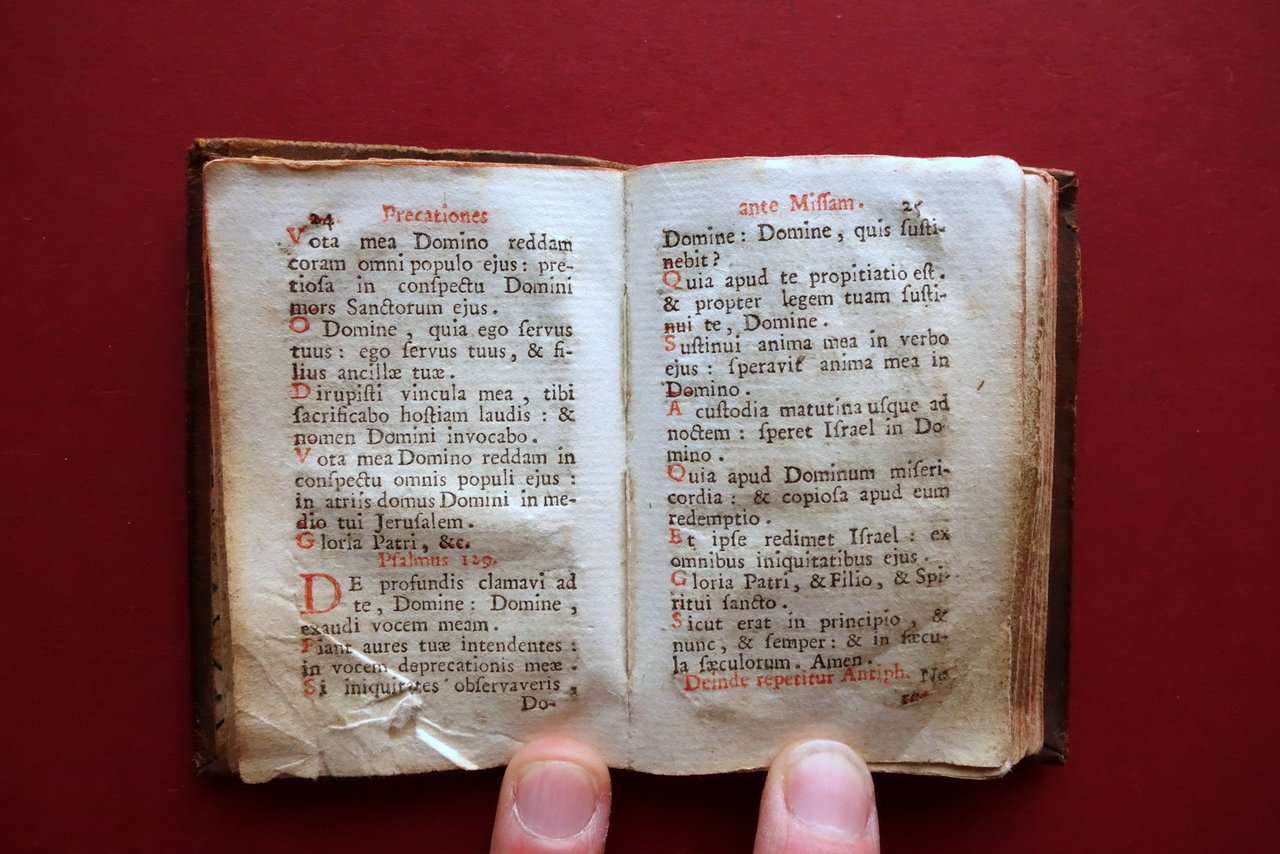 24. Precationes
Vota mea Domino reddam
coram omni populo ejus: pre-
tioſa in conſpectu Domini
mors Sanctorum ejus.
O Domine, quia ego ſervus
tuus: ego ſervus tuus, & fi-
lius ancillæ tuæ.
Dirupiſti vincula mea, tibi
ſacrificabo hoſtiam laudis: &
nomen Domini invocabo.
Vota mea Domino reddam in
conſpectu omnis populi ejus:
in atriis domus Domini in me-
dio tui Jeruſalem.
Gloria Patri, &c.
Pſalmus 129.
DE profundis clamavi ad
te, Domine: Domine,
exaudi vocem meam.
Fiant aures tuæ intendentes:
in vocem deprecationis meæ.
Si iniquitates obſervaveris,
Do-
ante Miſſam. 25
Domine: Domine, quis ſuſti-
nebit?
Quia apud te propitiatio est.
& propter legem tuam ſuſti-
nui te, Domine.
Suſtinui anima mea in verbo
ejus: ſperavit anima mea in
Domino.
A cuſtodia matutina uſque ad
noctem: ſperet Iſrael in Do
mino.
Quia apud Dominum miſeri-
cordia: & copioſa apud eum
redemptio.
Et ipſe redimet Iſrael: ex
omnibus iniquitatibus ejus.
Gloria Patri, & Filio, & Spi-
ritui ſancto.
Sicut erat in principio, &
nunc, & ſemper: & in ſæcu-
la ſæculorum. Amen.
Deinde repetitur Antiph. Ne
re-